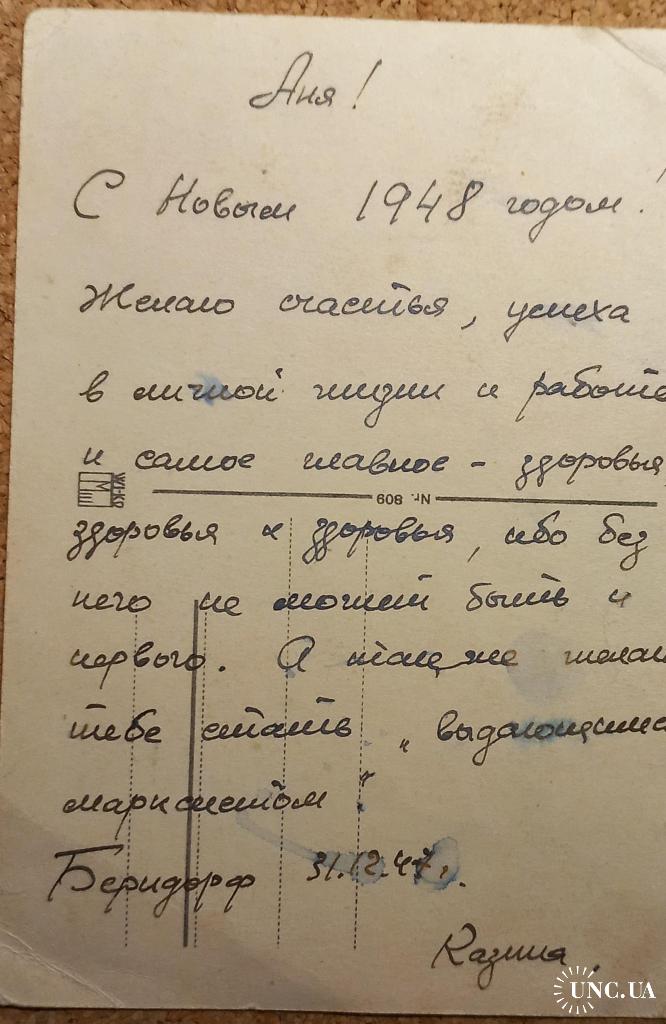 Аня!
С Новым 1948 годом!
Желаю счастья, успеха
в личной жизни и работе
и самое главное - здоровья,
WI-KO
Nr. 809
здоровья и здоровья, ибо без
него не может быть и
первого. А также желаю
тебе стать „выдающимся
марксистом"
31.12.47г.
UNC.UA